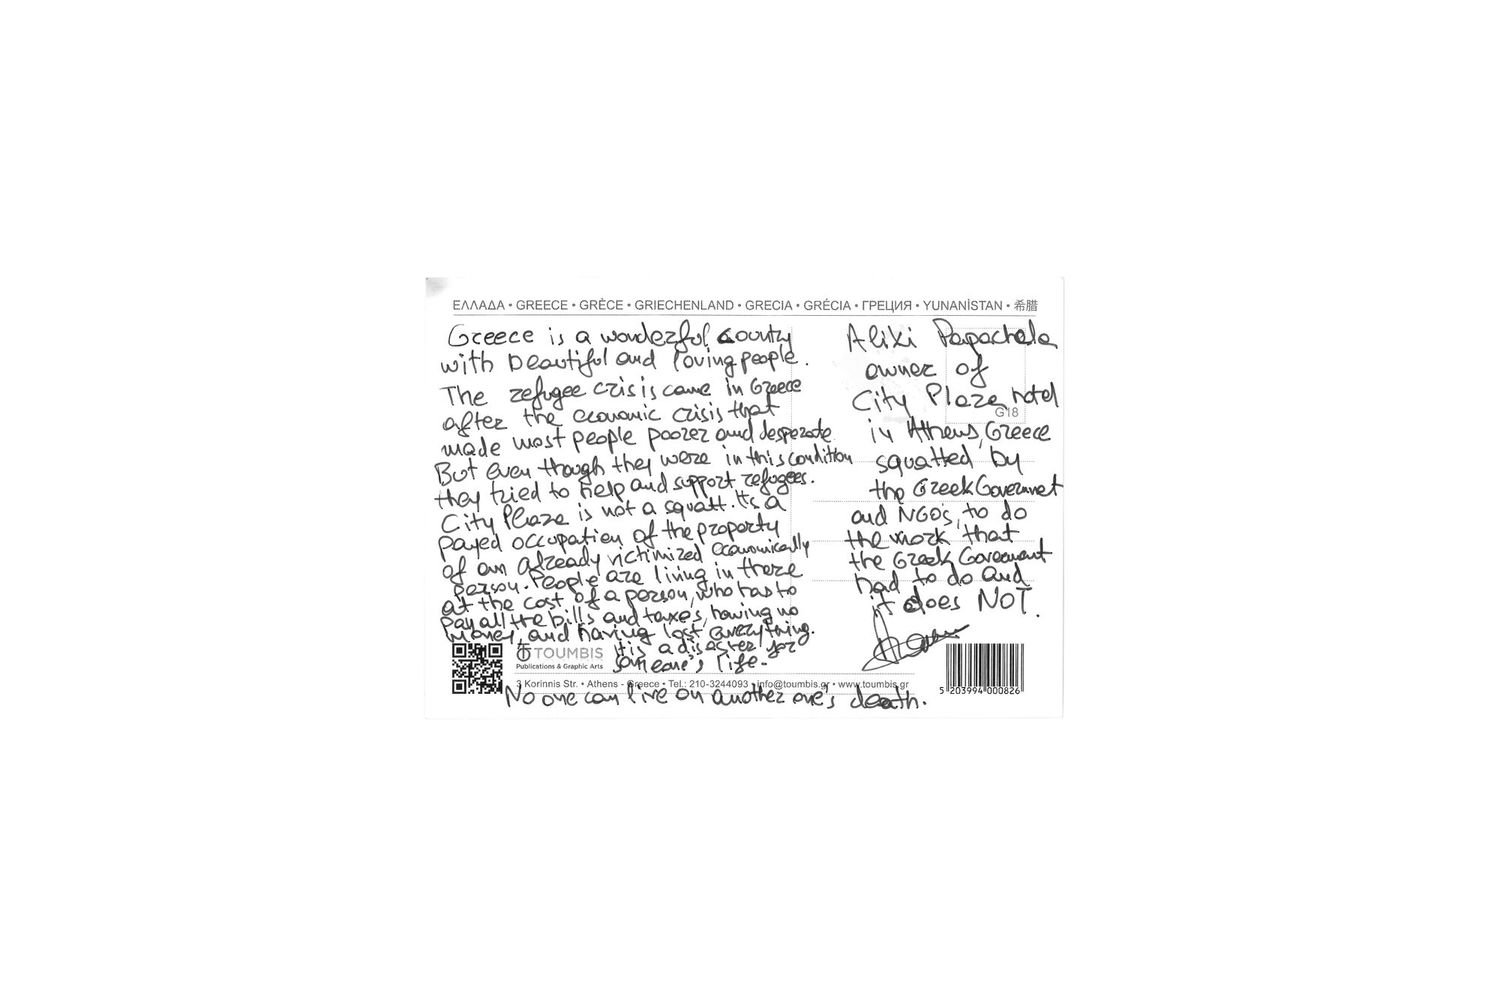 ΕΛΛΑΔΑ • GREECE • GRÈCE • GRIECHENLAND • GRECIA • GRÉCIA • ГРЕЦИЯ • YUNANİSTAN • 希腊
Greece is a wonderful country
with beautiful and loving people.
The refugee crisis came in Greece
after the economic crisis that
made most people poorer and desperate.
But even though they were in this condition
they tried to help and support refugees.
City Plaza is not a squatt. It's a
payed occupation of the property
of an already victimized economically
person. People are living in there
at the cost of a person, who has to
pay all the bills and taxes, having no
money, and having lost everything.
It is a disaster for
someone's life.
No one can live on another one's death.
Aliki Papachela
owner of
City Plaza hotel
in Athens, Greece
squatted by
the Greek Goverment
and NGO's, to do
the work that
the Greek Goverment
had to do and
it does NOT.
G18
TOUMBIS
Publications & Graphic Arts
3 Korinnis Str. • Athens - Greece • Tel.: 210-3244093 • info@toumbis.gr • www.toumbis.gr
5 203994 000826